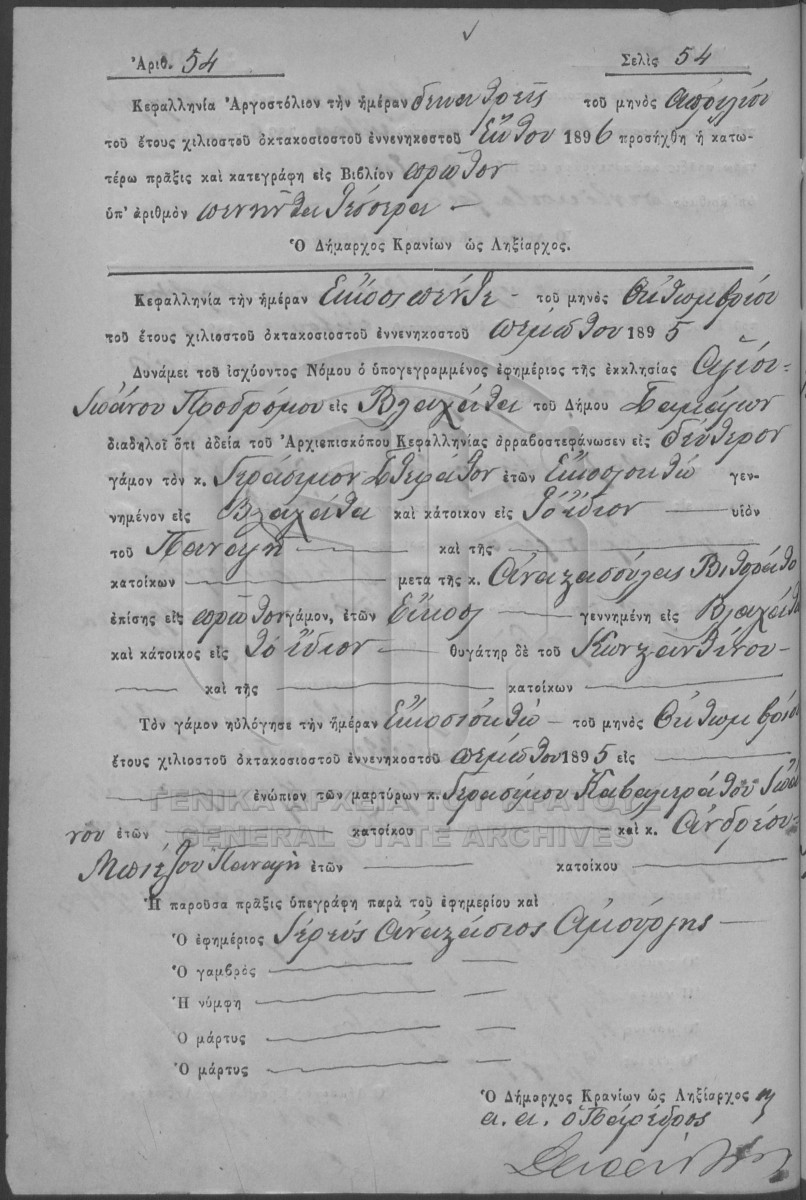 Ἀριθ. 54
Σελὶς 54
Κεφαλληνία Ἀργοστόλιον τὴν ἡμέραν δεκατρεῖς τοῦ μηνὸς Ἀπριλίου
τοῦ ἔτους χιλιοστοῦ ὀκτακοσιοστοῦ ἐννενηκοστοῦ Ἕκτου 1896 προσήχθη ἡ κατω-
τέρω πρᾶξις καὶ κατεγράφη εἰς Βιβλίον πρῶτον
ὑπ' ἀριθμὸν πενῆντα τέσσερα —
Ὁ Δήμαρχος Κρανίων ὡς Ληξίαρχος.
Κεφαλληνία τὴν ἡμέραν Εἴκοσι πέντε — τοῦ μηνὸς Ὀκτωμβρίου
τοῦ ἔτους χιλιοστοῦ ὀκτακοσιοστοῦ ἐννενηκοστοῦ πέμπτου 1895
Δυνάμει τοῦ ἰσχύοντος Νόμου ὁ ὑπογεγραμμένος ἐφημέριος τῆς ἐκκλησίας Ἁγίου
Ἰωάνου Προδρόμου εἰς Βλαχάτα τοῦ Δήμου Σαμαίων
διαδηλοῖ ὅτι ἀδείᾳ τοῦ Ἀρχιεπισκόπου Κεφαλληνίας ἀρραβοστεφάνωσεν εἰς δεύτερον
γάμον τὸν κ. Γεράσιμον ἐτῶν Εἴκοσι οκτώ γεν-
νημένον εἰς Βλαχάτα καὶ κάτοικον εἰς Τὸ ἴδιον — υἱὸν
τοῦ Παναγῆ — καὶ τῆς —
κατοίκων — μετὰ τῆς κ. Ἀναστασούλας
ἐπίσης εἰς πρῶτον γάμον, ἐτῶν Εἴκοσι — γεννημένη εἰς Βλαχάτα
καὶ κάτοικος εἰς τὸ ἴδιον — θυγάτηρ δὲ τοῦ Κωνσταντίνου —
— καὶ τῆς — κατοίκων —
Τὸν γάμον ηὐλόγησε τὴν ἡμέραν Εἴκοσι ὀκτώ — τοῦ μηνὸς Ὀκτωμβρίου
ἔτους χιλιοστοῦ ὀκτακοσιοστοῦ ἐννενηκοστοῦ πέμπτου 1895 εἰς —
— ἐνώπιον τῶν μαρτύρων κ. Γερασίμου Καβαλιεράτου Ἰωά
νου ἐτῶν — κατοίκου — καὶ κ. Ἀνδρέου
Παναγῆ ἐτῶν — κατοίκου —
Ἡ παροῦσα πρᾶξις ὑπεγράφη παρὰ τοῦ ἐφημερίου καὶ
Ὁ ἐφημέριος Ἱερεύς Ἀναστάσιος —
Ὁ γαμβρὸς —
Ἡ νύμφη —
Ὁ μάρτυς —
Ὁ μάρτυς —
Ὁ Δήμαρχος Κρανίων ὡς Ληξίαρχος
α. α. ὁ Πάρεδρος
ΓΕΝΙΚΑ ΑΡΧΕΙΑ ΤΟΥ ΚΡΑΤΟΥΣ
GENERAL STATE ARCHIVES